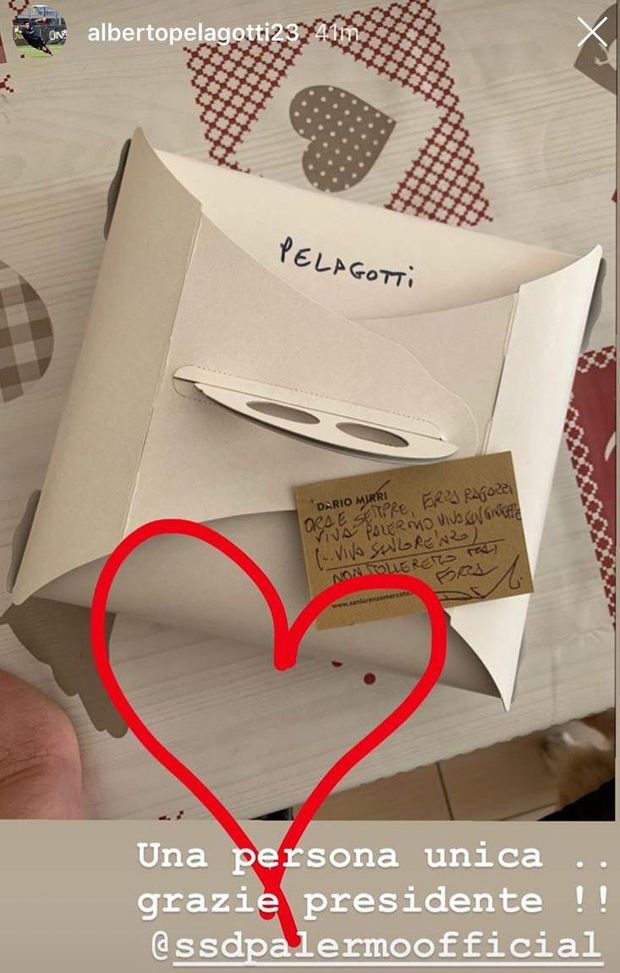 albertopelagotti23 41m
PELAGOTTi
DARIO MIRRI
ORA E SEMPRE, FORZA RAGAZZI
VIVA PALERMO VIVA
(..VIVA SAN LORENZO)
NON
FORZA
www.sanlorenzomercato
Una persona unica ..
grazie presidente !!
@ssdpalermoofficial